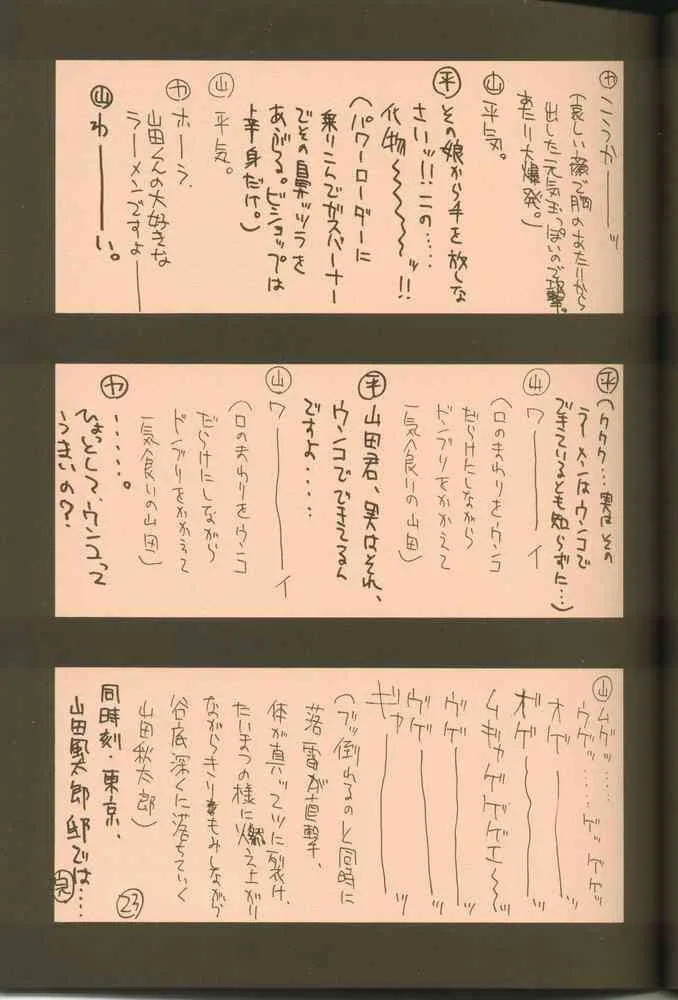 ヤ こうかーーーッ
(哀しい顔で胸のあたりから
出した元気玉っぽいので攻撃。
あたり大爆発。)
山 平気。
平 その娘から手を放しな
さいッ!!この……
化物〜〜〜〜ッ!!
(パワーローダーに
乗りこんでガスバーナー
でその鼻ッツラを
あぶる。ビショップは
上半身だけ。)
山 平気。
ヤ ホーラ、
山田くんの大好きな
ラーメンですよーー
山 わーーーい。
平 (ククク…実はその
ラーメンはウンコで
できているとも知らずに…)
山 ワーーーーイ
(口のまわりをウンコ
だらけにしながら
ドンブリをかかえて
一気食いの山田)
平 山田君、実はそれ、
ウンコでできてるん
ですよ……
山 ワーーーーイ
(口のまわりをウンコ
だらけにしながら
ドンブリをかかえて
一気食いの山田)
ヤ ……。
ひょっとして、ウンコって
うまいの?
山 ムゲッ……
ウゲッ……ゲッゲゲッ
オゲーーーーッ
オゲーーーーッ
ムギャゲゲゲエ〜〜ッ
ウゲーーーーッ
ウゲーーーーッ
ギャーーーーッ
(ブッ倒れるのと同時に
落雷が直撃、
体が真ッ二ツに裂け、
たいまつの様に燃え上がり
ながらきりもみしながら
谷底深くに落ちていく
山田秋太郎)
同時刻・東京、
山田風太郎邸では……
完
23